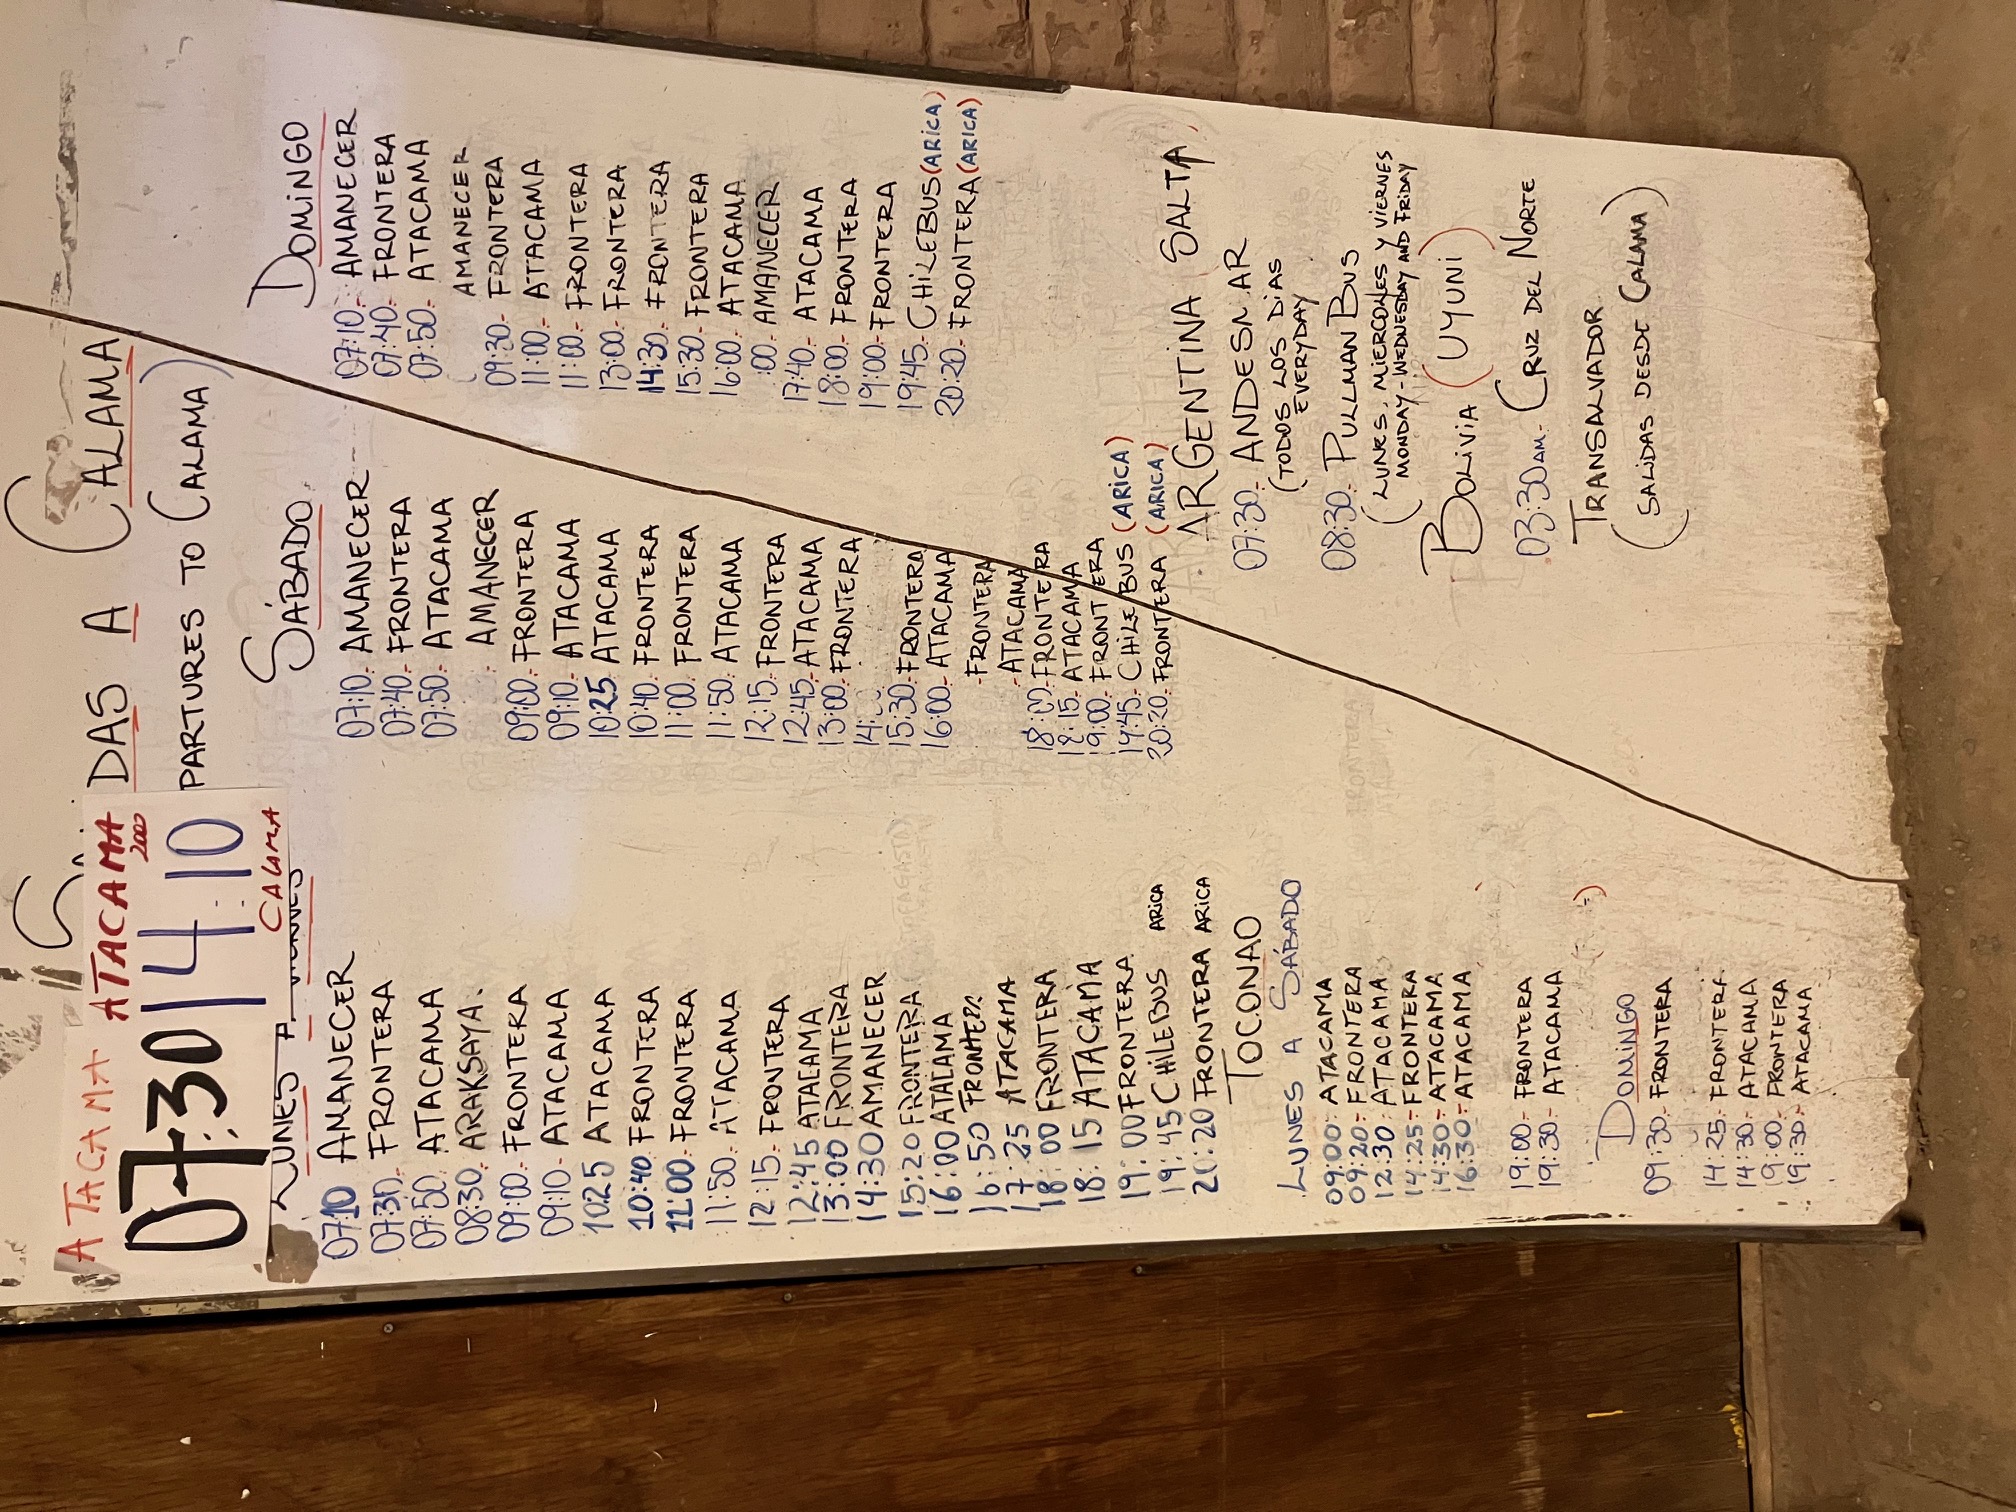 DAS A CALAMA
PARTURES TO CALAMA)
ATACAMA ATACAMA 2000
07:30 14:10
CALAMA
LUNES A
07:10 AMANECER
07:30.- FRONTERA
07:50.- ATACAMA
08:30.- ARAKSAYA.
09:00.- FRONTERA
09:10.- ATACAMA
10:25 ATACAMA
10:40 FRONTERA
11:00.- FRONTERA
11:50.- ATACAMA
12:15.- FRONTERA
12:45 ATACAMA
13:00 FRONTERA
14:30 AMANECER
15:20 FRONTERA
16:00 ATACAMA
16:50 FRONTERA
17:25 ATACAMA
18:00 FRONTERA
18:15 ATACAMA
19:00 FRONTERA
19:45 CHILEBUS ARICA
20:20 FRONTERA ARICA
TOCONAO
LUNES A SÁBADO
09:00.- ATACAMA
09:20.- FRONTERA
12:30 ATACAMA
14:25.- FRONTERA
14:30.- ATACAMA
16:30.- ATACAMA
19:00.- FRONTERA
19:30.- ATACAMA
DOMINGO
09:30.- FRONTERA
14:25.- FRONTERA
14:30.- ATACAMA
19:00.- FRONTERA
19:30.- ATACAMA
SÁBADO
07:10.- AMANECER
07:40.- FRONTERA
07:50.- ATACAMA
AMANECER
09:00.- FRONTERA
09:10.- ATACAMA
10:25 ATACAMA
10:40.- FRONTERA
11:00.- FRONTERA
11:50.- ATACAMA
12:15.- FRONTERA
12:45.- ATACAMA
13:00.- FRONTERA
15:30.- FRONTERA
16:00.- ATACAMA
.- FRONTERA
.- ATACAMA
18:00.- FRONTERA
18:15.- ATACAMA
19:00.- FRONTERA
19:45.- CHILE BUS (ARICA)
20:20.- FRONTERA (ARICA)
DOMINGO
07:10.- AMANECER
07:40.- FRONTERA
07:50.- ATACAMA
AMANECER
09:30.- FRONTERA
11:00.- ATACAMA
11:00.- FRONTERA
13:00.- FRONTERA
14:30.- FRONTERA
15:30.- FRONTERA
16:00.- ATACAMA
:00.- AMANECER
17:40.- ATACAMA
18:00.- FRONTERA
19:00.- FRONTERA
19:45.- CHILEBUS (ARICA)
20:20.- FRONTERA (ARICA)
ARGENTINA SALTA
07:30.- ANDESMAR
(TODOS LOS DÍAS
EVERYDAY
08:30.- PULLMAN BUS
(LUNES, MIERCOLES Y VIERNES
MONDAY - WEDNESDAY AND FRIDAY
BOLIVIA (UYUNI)
03:30 AM.- CRUZ DEL NORTE
TRANSALVADOR
(SALIDAS DESDE CALAMA)